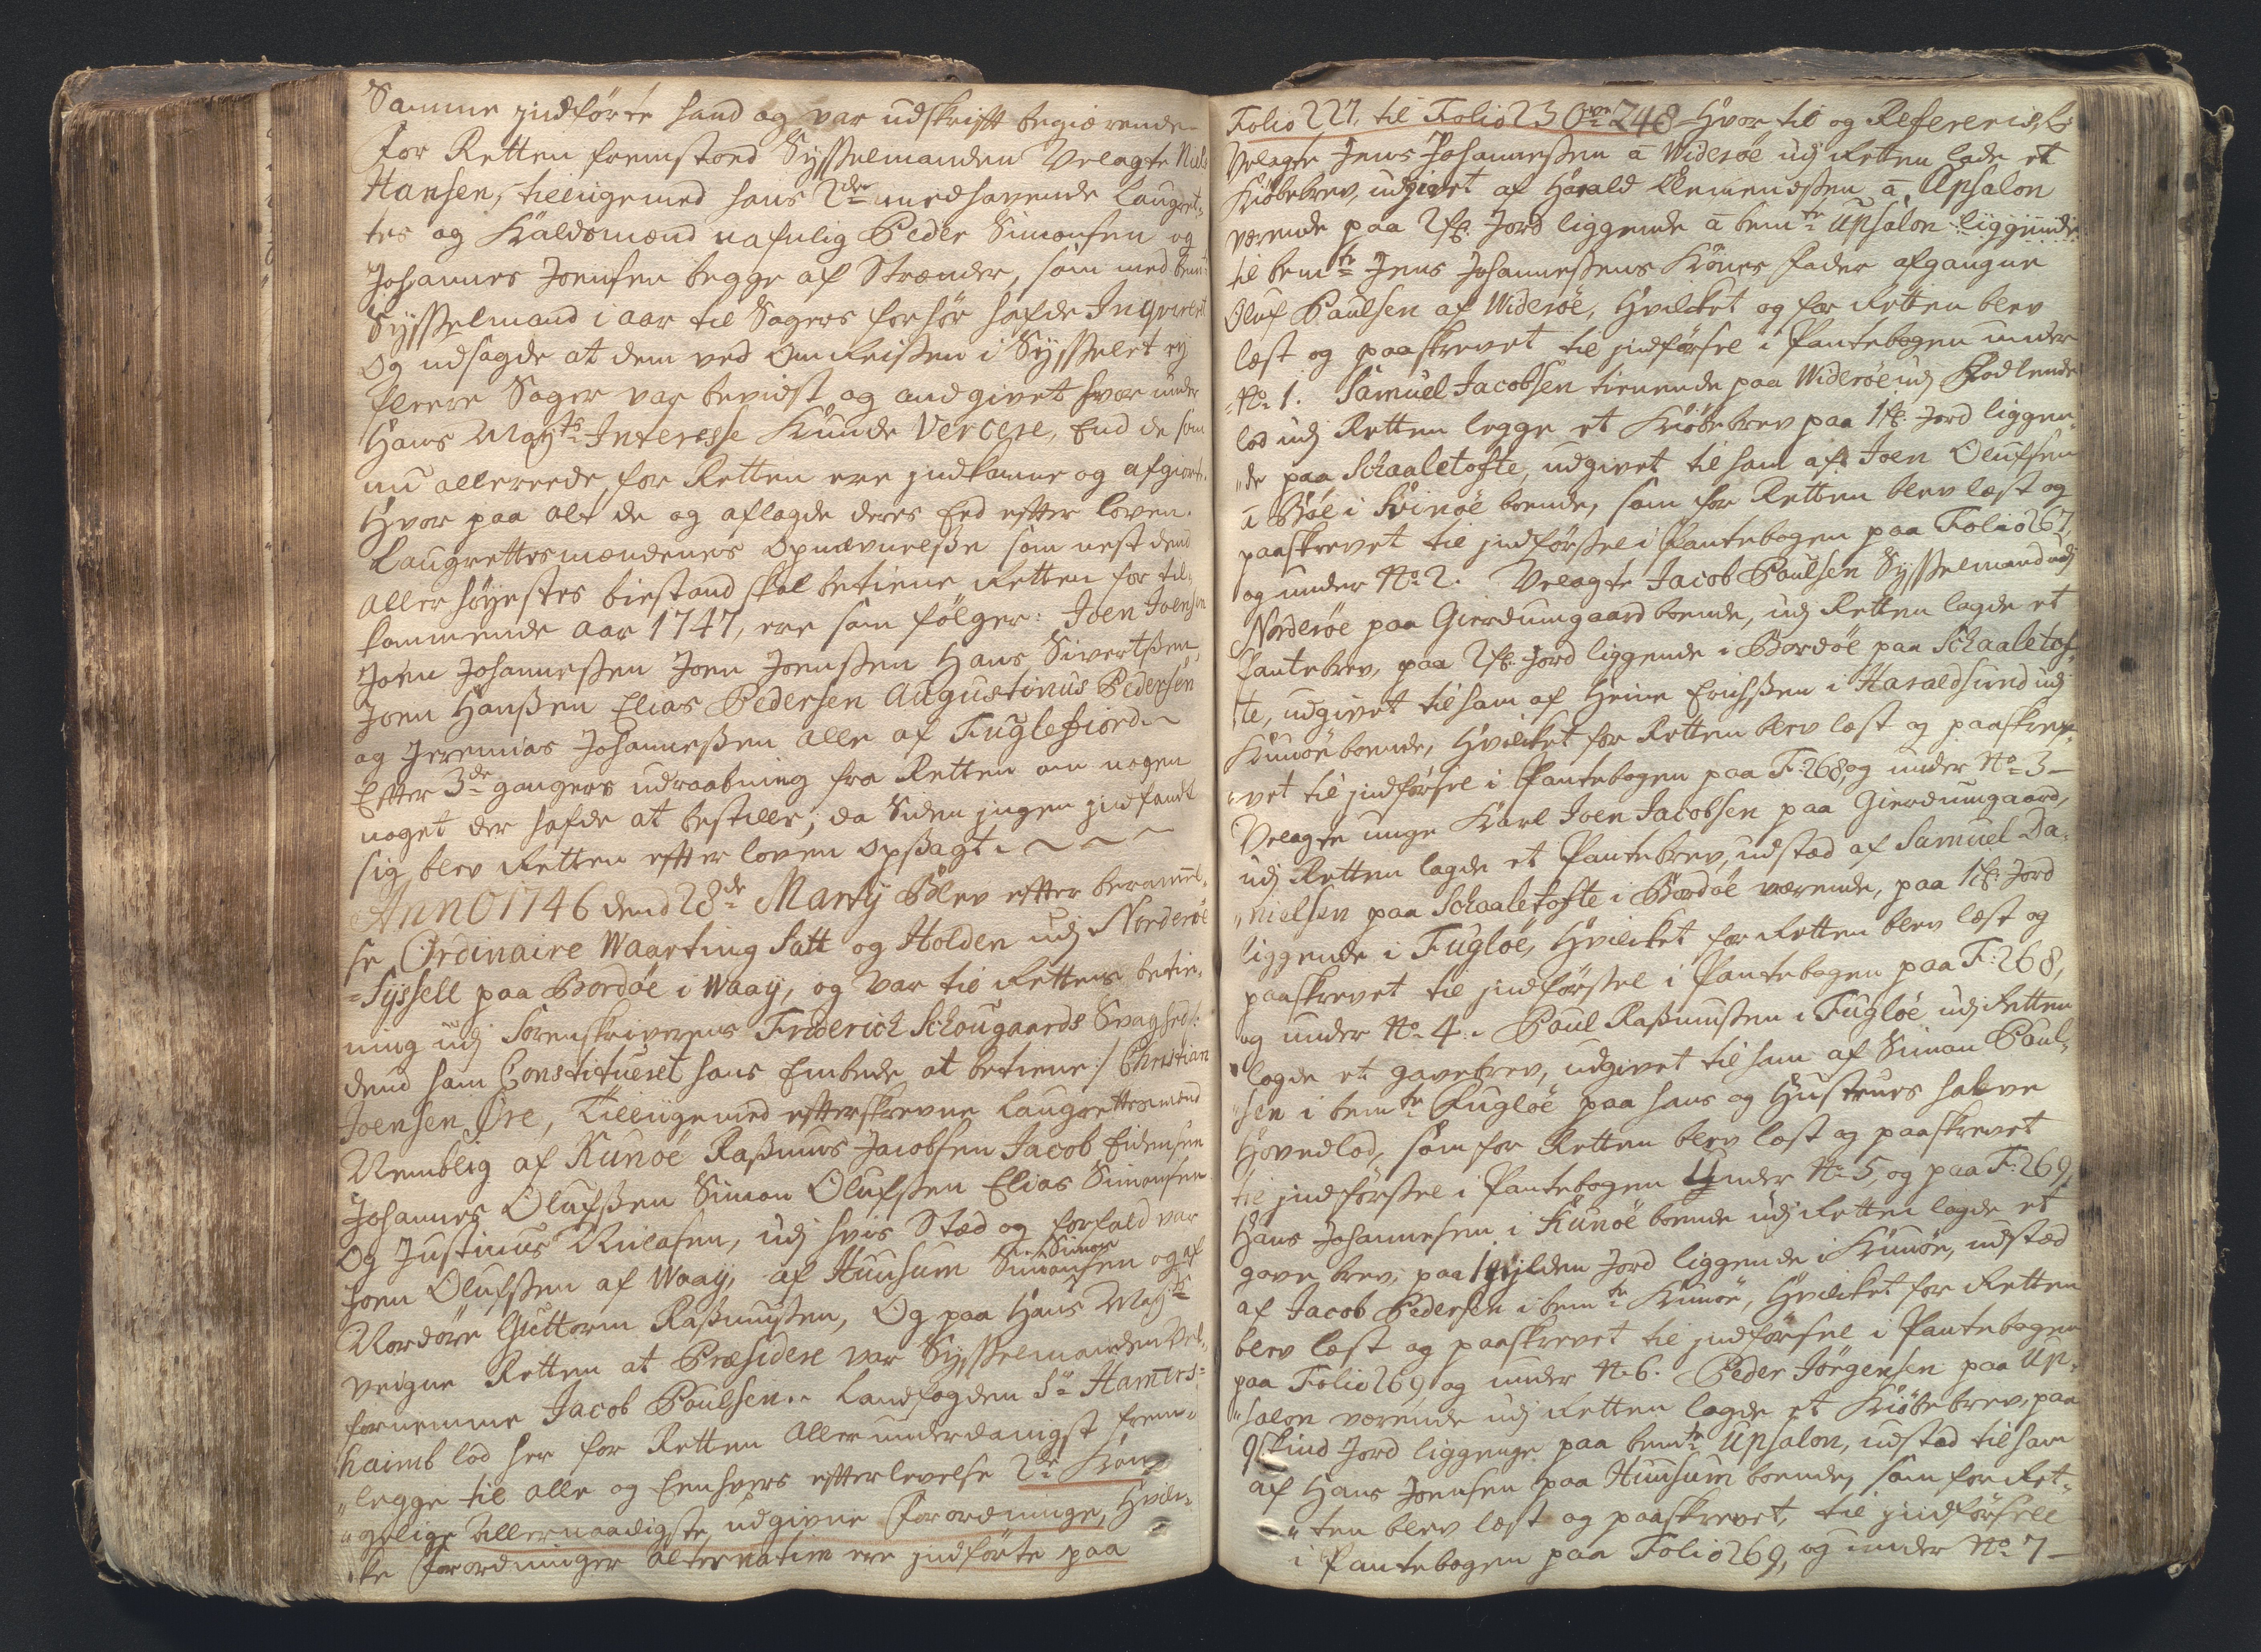 Samme jndförte hand og var udskrifft begiærende
For Retten fremstoed Sysselmanden Velagte Niels
Hansen, tillige med hans 2de medhavende Laugret-
tes og Kaldsmænd nafnlig Peder Simonsen og
Johannes Joensen begge af Strænder, som med bemte
Sysselmand i aar til Sagers forhör hafde Inqvireret
Og udsagde at dem ved Omreisen i Sysselet ej
fleere Sager var bevidst og andgivet hvor under
Hans Maytz Interesse kunde Versere, End de som
nu allereede for Retten ere jndkomne og afgiorte.
Hvor paa alt de og aflagde deres Eed effter loven.
Laugrettesmændenes opnævnelsse som nest dend
Aller höyestes bistand skal betiene Retten for til-
kommende aar 1747, ere som fölger: Joen Joensen
Joen Johannessen Joen Joenssen Hans Sivertssen,
Joen Hanssen Elias Pedersen Augustinus Pedersen
og Jeremias Johannessen alle af Fuglefiord
Effter 3de ganges udraabning fra Retten om nogen
noget der hafde at bestille; da siden jngen jndfandt
sig, blev Retten effter loven opsagt.
Anno 1746 dend 28de Martij Blev effter berammel-
se Ordinaire Waarting Satt og Holden udj Norderöe
Syssell paa Bordöe i Waaÿ, og var til Rettens betie-
ning udj Sorenskriverens Friderich Schougaards Svaghed:
dend ham Constitueret hans Embede at betiene :/ Christian
Joensen Øre, Tillige med effterskrevne Laugrettesmænd
Nemblig af Kunöe Rasmus Jacobsen Jacob Eidensen
Johannes Olufssen Simon Olufssen Elias Simonsen
Og Justinus Nielssen, udj hvis Stæd og forfald var
Joen Olufssen af Waaÿ, af Huusum Simon
Simonsen og af
Nordöre Guttorm Rasmussen, Og paa Hans Maytz
veigne Retten at Præsidere var Sysselmanden Vel-
fornemme Jacob Poulsen. Landfogden Sr Hamers-
haimb lod her for Retten allerunderdanigst frem-
legge til alle og Eenhvers effterlevelse 2de Kon-
gelige allernaadigste udgivne Forordninger, Hvil-
ke Forordninger alternatim ere jndförte paa
Folio 227, til Folio 230 248 Hvor til og Refereris.
Velagte Jens Johannessen a Wideröe udj Retten lade et
Kiöbebrev, udgivet af Harald Clemendssen a Upsalon
værende paa 2 ß: Jord liggende a bemte Upsalon liggende
til bemte Jens Johannessens Kones Fader afgangne
Oluf Paulsen af Wideröe, Hvilcket og for Retten blev
læst og paaskrevet til jndförsel i Pantebogen under
No 1. Samuel Jacobsen tienende paa Wideröe udj
lod udj Retten legge et Kiöbebrev paa 1 ß: Jord liggen-
de paa Schaaletofte, udgivet til ham af Joen Olufsen
a Böe i Svinöe boende, som for Retten blev læst og
paaskrevet til jndförssel i Pantebogen paa Folio 267
og under No 2. Velagte Jacob Poulsen Sysselmand udj
Norderöe paa Gierdumgaard boende, udj Retten lagde et
Pantebrev, paa 2 ß: Jord liggende i Bordöe paa Schaaletof-
te, udgivet til ham af Heine Erichssen i Haraldsund udj
Kunöe boende, Hvilcket for Retten blev læst og paaskre-
vet til jndförsel i Pantebogen paa F: 268, og under No 3
Velagte unge Karl Joen Jacobsen paa Gierdumgaard,
udj Retten lagde et Pantebrev, udstæd af Samuel Da-
nielsen paa Schaaletofte i Bordöe værende, paa 1 ß: Jord
liggende i Fuglöe, Hvilcket for Retten blev læst og
paaskrevet til jndförssel i Pantebogen paa F: 268,
og under No 4. Poul Rasmussen i Fuglöe udj Retten
lagde et gavebrev, udgivet til ham af Simon Poul-
sen i bemte Fuglöe paa hans og Hustrues halve
Hovedlod, som for Retten blev læst og paaskrevet
til jndförssel i Pantebogen Under No 5, og paa F: 269,
Hans Johannesen i Kunöe boende udj Retten lagde et
gave brev, paa 1 gylden Jord liggende i Kunöe, udstæd
af Jacob Pedersen i bemte Kunöe, Hvilcket for Retten
blev læst og paaskrevet til jndförsel i Pantebogen
paa Folio 269, og under No 6. Peder Jörgensen paa Up-
salon værende udj Retten lagde et Kiöbebrev, paa
9 skind Jord liggenge paa bemte Upsalon, udstæd til ham
af Hans Joensen paa Huusum boende, som for Ret-
ten blev læst og paaskrevet, til jndförsell
i Pantebogen paa Folio 269, og under No 7